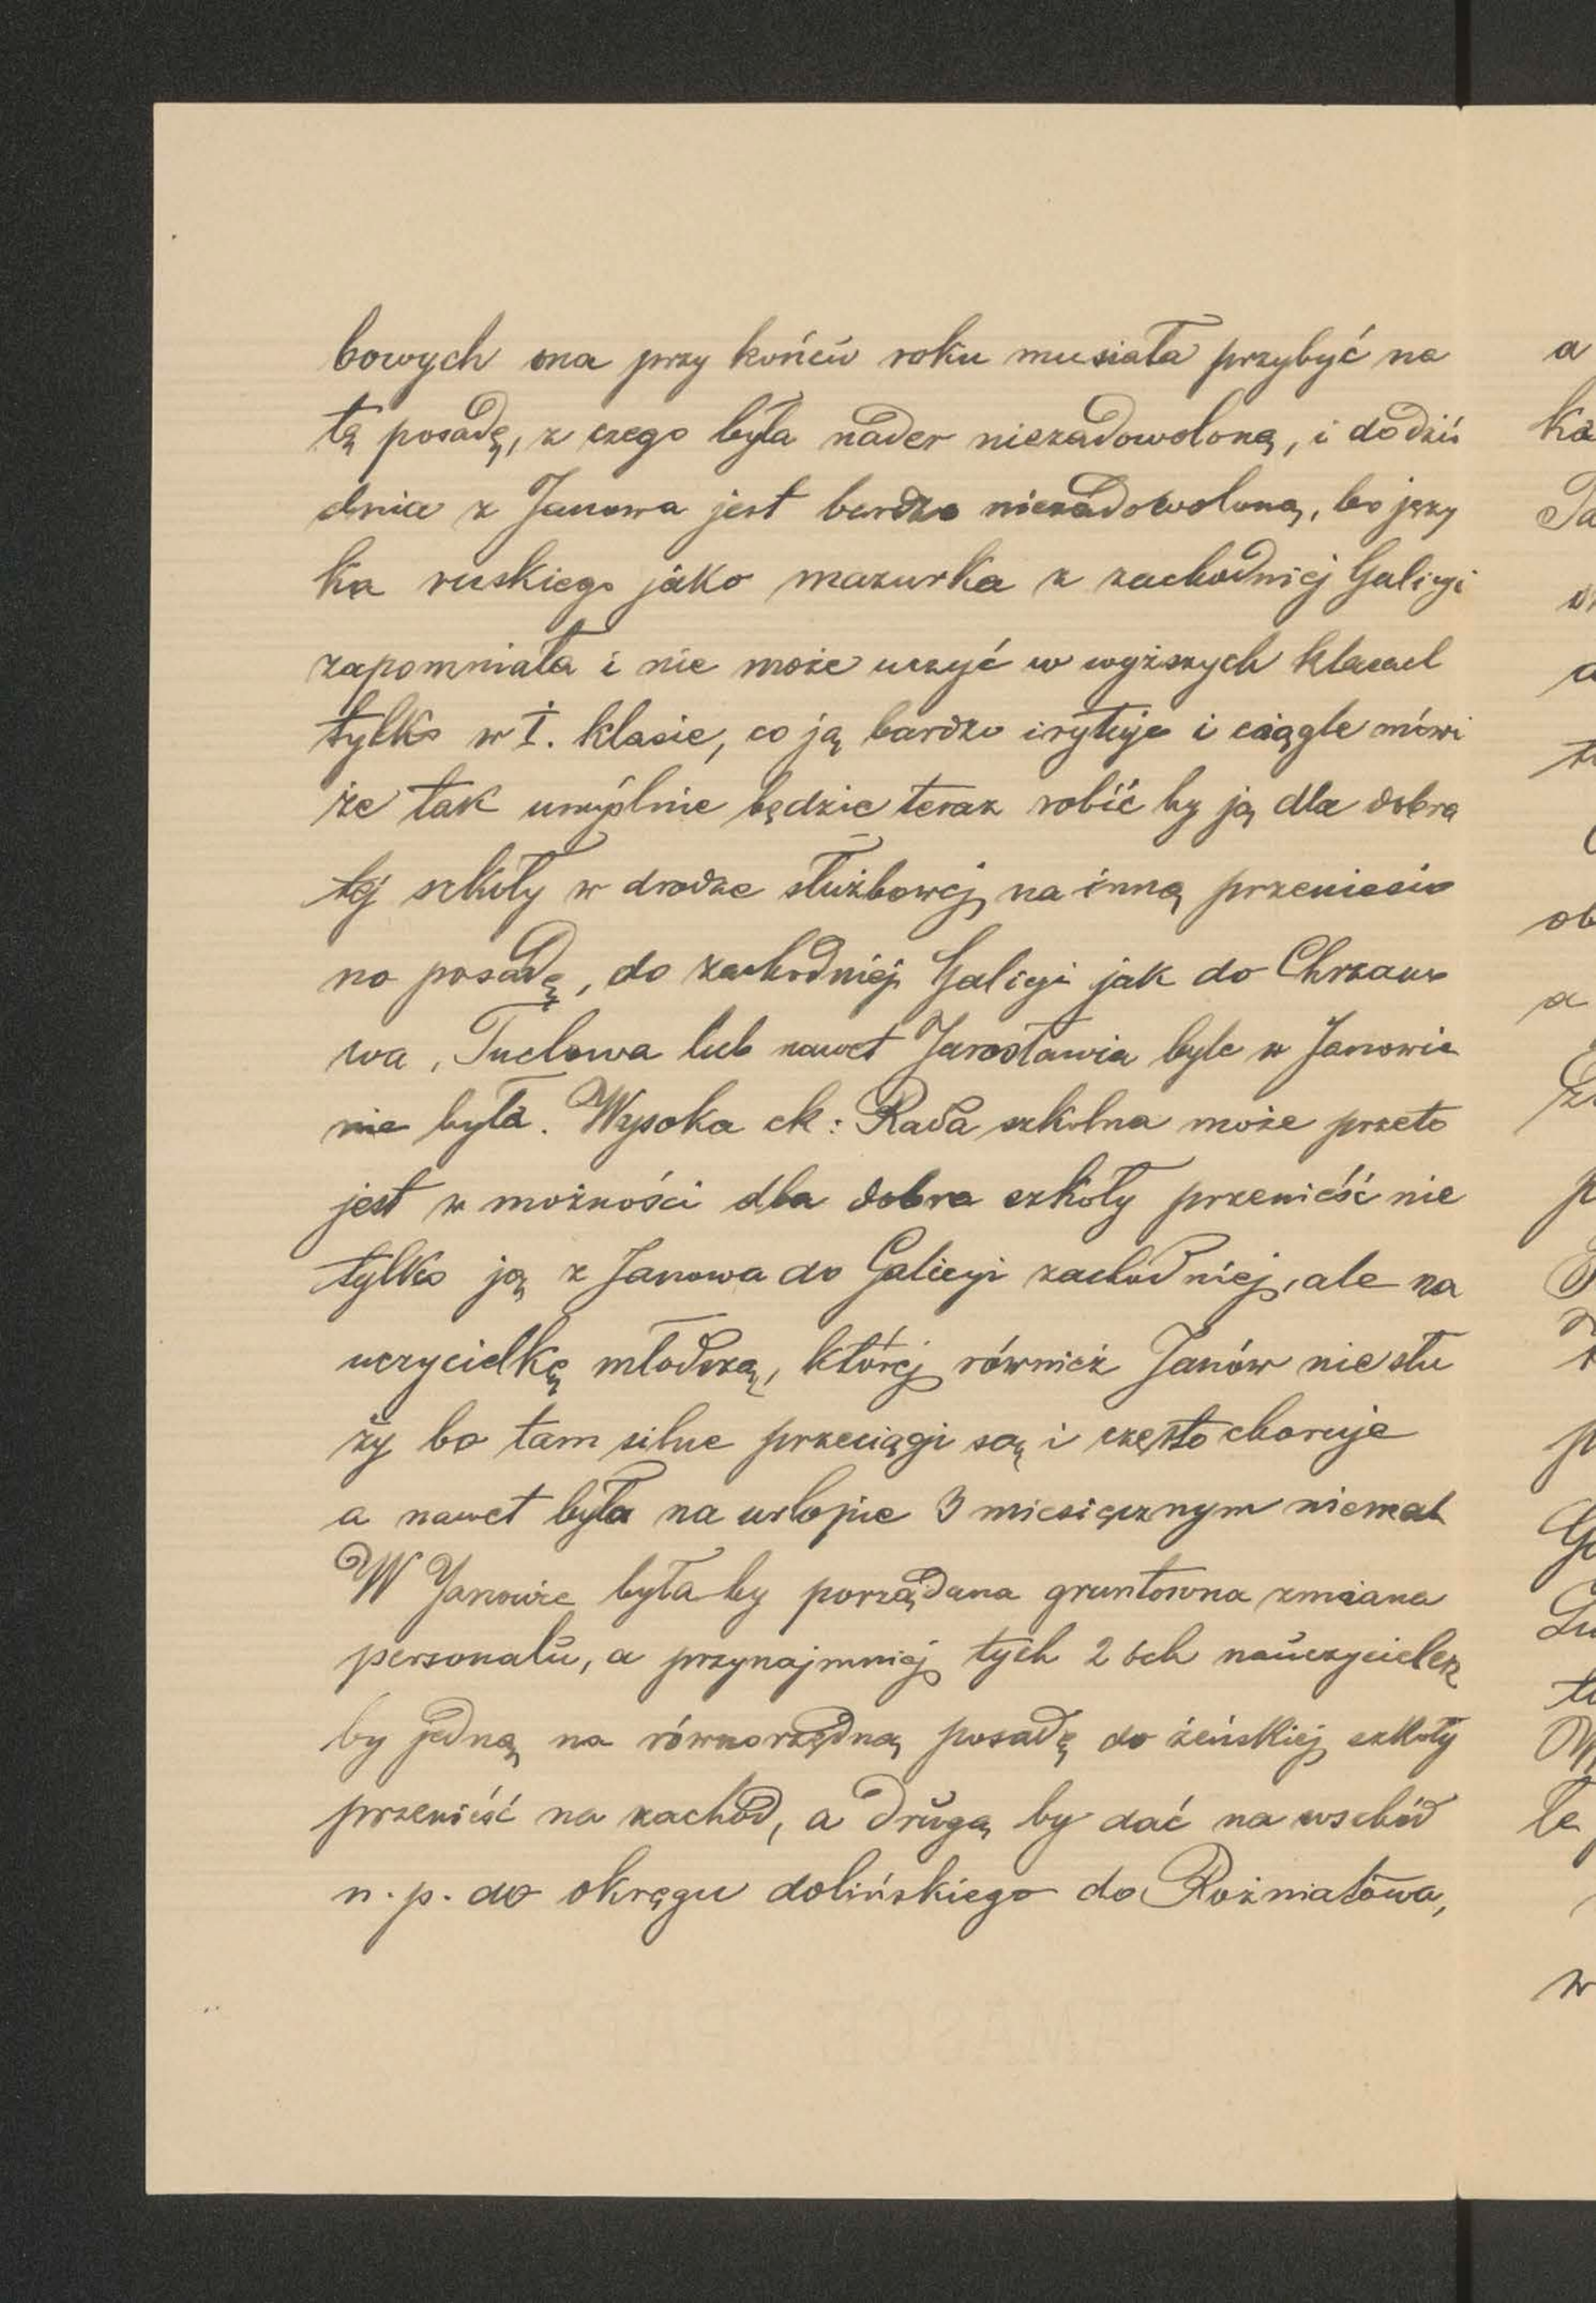 bowych ona przy końcu roku musiała przybyć na
tą posadę, z czego była nader niezadowoloną, i do dziś
dnia z Janowa jest bardzo niezadowoloną, bo języ
ka ruskiego jako mazurka z zachodniej Galicyi
zapomniała i nie może uczyć w wyższych klasach
tylko w I. klasie, co ją bardzo irytuje i ciągle mówi
że tak umyślnie będzie teraz robić by ją dla dobra
tej szkoły w drodze służbowej na inną przeniesio
no posadę, do zachodniej Galicyi jak do Chrzano
wa, Tuchowa lub nawet Jarosławia byle w Janowie
nie była. Wysoka ck: Rada szkolna może przeto
jest w możności dla dobra szkoły przenieść nie
tylko ją z Janowa do Galicyi zachodniej, ale na
uczycielkę młodszą, której również Janów nie słu
ży bo tam silne przeciągi są i często choruje
a nawet była na urlopie 3 miesięcznym niemal
W Janowie była by porządana gruntowna zmiana
personalu, a przynajmniej tych 2 óch nauczycielek
by jedną na równorzędną posadę do żeńskiej szkoły
przenieść na zachód, a drugą by dać na wschód
n. p. do okręgu dolińskiego do Rożniatowa,